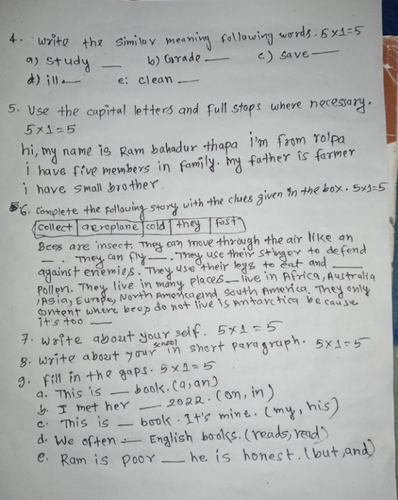 4. Write the similar meaning following words. 5×1=5
a) study — b) Grade — c) save —
d) ill — e: clean —
5. Use the capital letters and full stops where necessary.
5×1=5
hi, my name is Ram bahadur thapa i'm from rolpa
i have five members in family. my father is farmer
i have small brother.
6. complete the following story with the clues given in the box. 5×1=5
collect aeroplane cold they fast
Bees are insect. They can move through the air like an
—. They can fly —. They use their stinger to defend
against enemies. They use their legs to eat and —
Pollen. They live in many places — live in Africa, Australia
, Asia, Europe, North America and South America. They only
content where bees do not live is antarctica because
it's too —
7. Write about your self. 5×1=5
8. Write about your school in short paragraph. 5×1=5
9. Fill in the gaps. 5×1=5
a. This is — book. (a, an)
b. I met her — 2022. (on, in)
c. This is — book. It's mine. (my, his)
d. We often — English books. (reads, read)
e. Ram is poor — he is honest. (but, and)